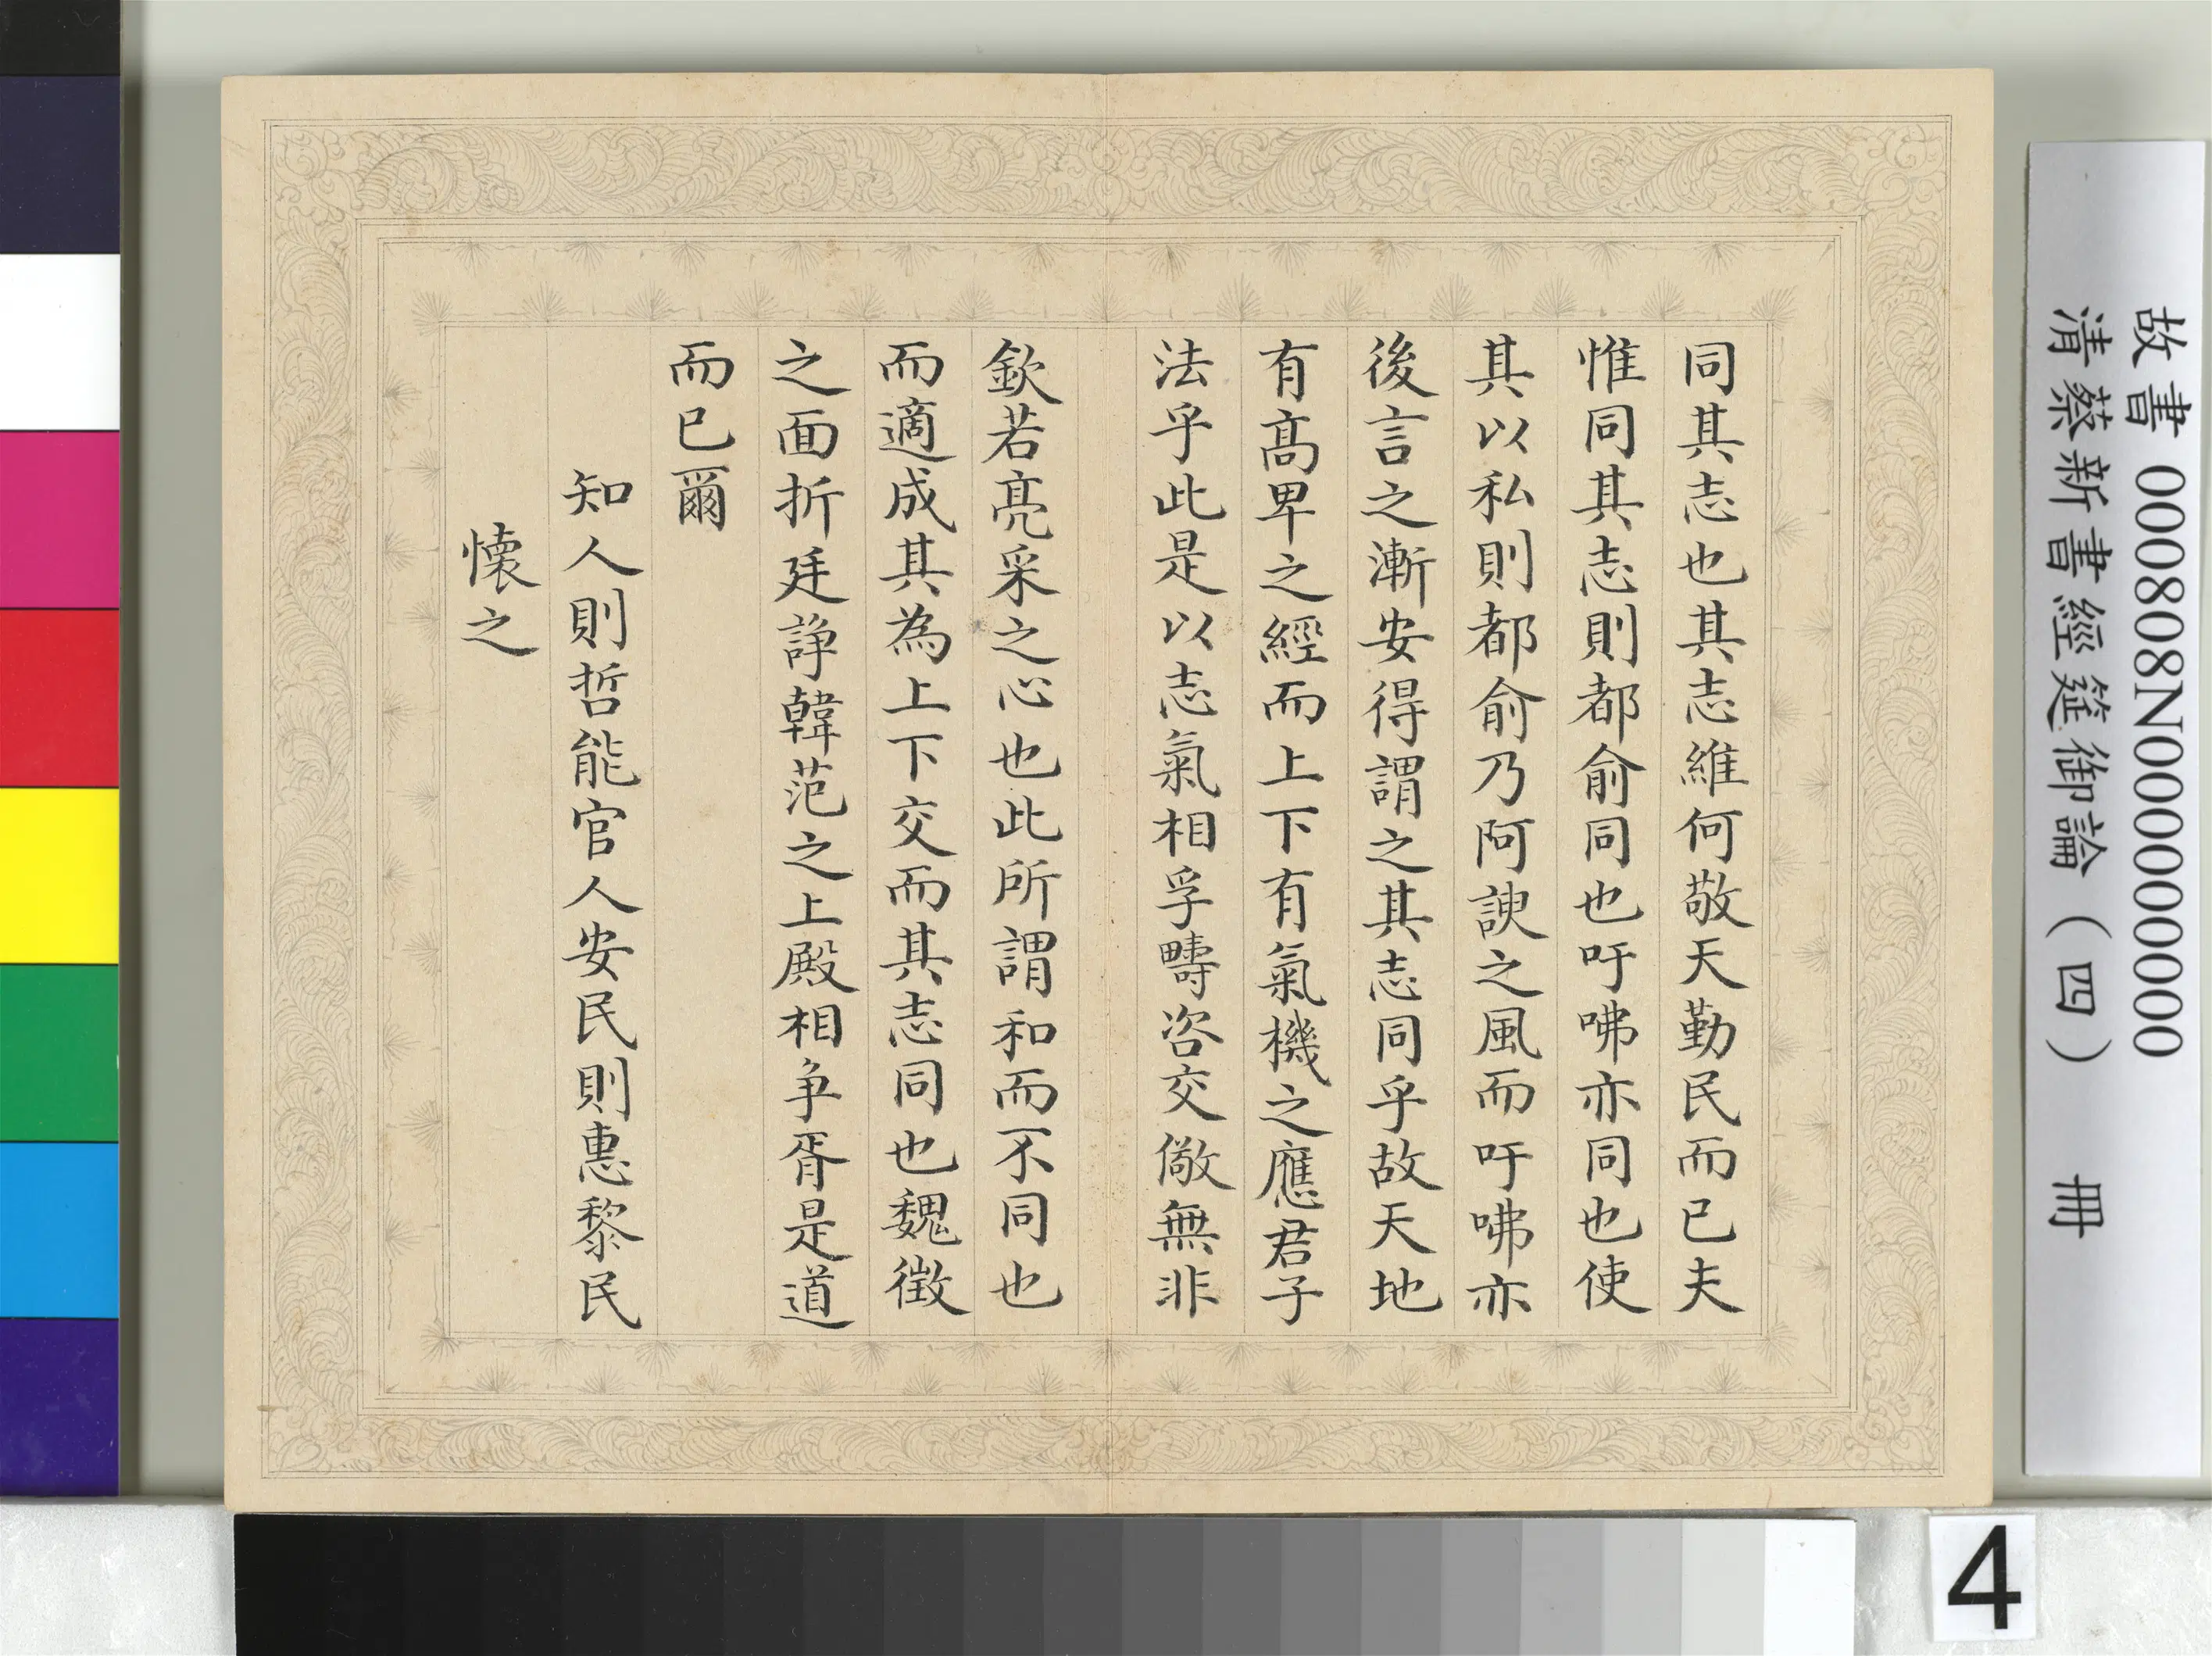 同其志也其志維何敬天勤民而已夫
惟同其志則都俞同也吁咈亦同也使
其以私則都俞乃阿諛之風而吁咈亦
後言之漸安得謂之其志同乎故天地
有髙卑之經而上下有氣機之應君子
法乎此是以志氣相孚疇咨交儆無非
欽若亮采之心也此所謂和而不同也
而適成其為上下交而其志同也魏徵
之面折廷諍韓范之上殿相争胥是道
而已爾
知人則哲能官人安民則惠黎民
懷之
故書 000808N000000000
清蔡新書經筵御論（四） 冊
4